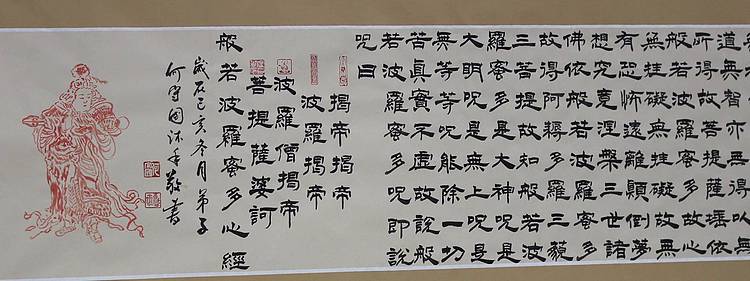 道無智亦無得以無
所得故菩提薩埵依
般若波羅蜜多故心
無挂礙無挂礙故無
有恐怖遠離顛倒夢
想究竟涅槃三世諸
佛依般若波羅蜜多
故得阿耨多羅三藐
三菩提故知般若波
羅蜜多是大神呪是
大明呪是無上呪是
無等等呪能除一切
苦真實不虛故說般
若波羅蜜多呪即說
呪曰
揭帝揭帝
波羅揭帝
波羅僧揭帝
菩提薩婆訶
般若波羅蜜多心經
歲在己亥冬月弟子
何守沐手敬書